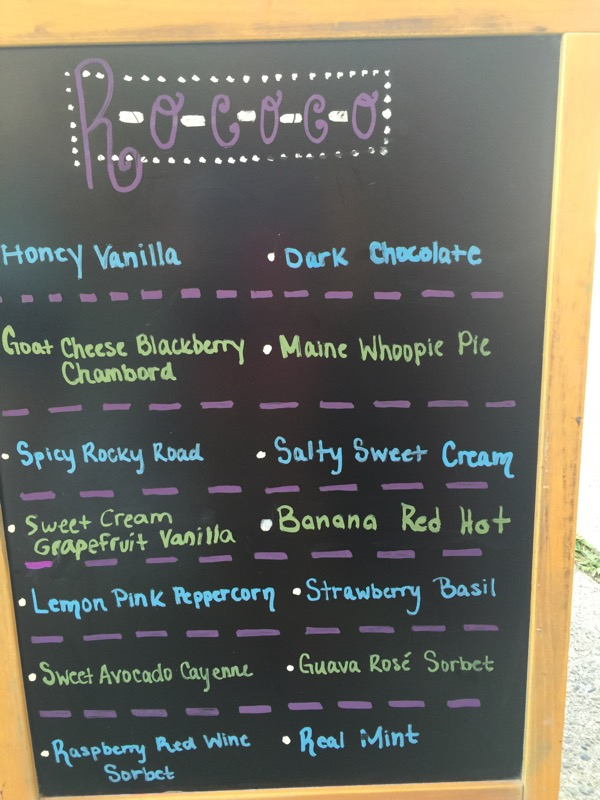 R-o-c-o-c-o
Honey Vanilla • Dark Chocolate
Goat Cheese Blackberry • Maine Whoopie Pie
Chambord
• Spicy Rocky Road • Salty Sweet Cream
• Sweet Cream • Banana Red Hot
Grapefruit Vanilla
• Lemon Pink Peppercorn • Strawberry Basil
• Sweet Avocado Cayenne • Guava Rosé Sorbet
• Raspberry Red Wine • Real Mint
Sorbet